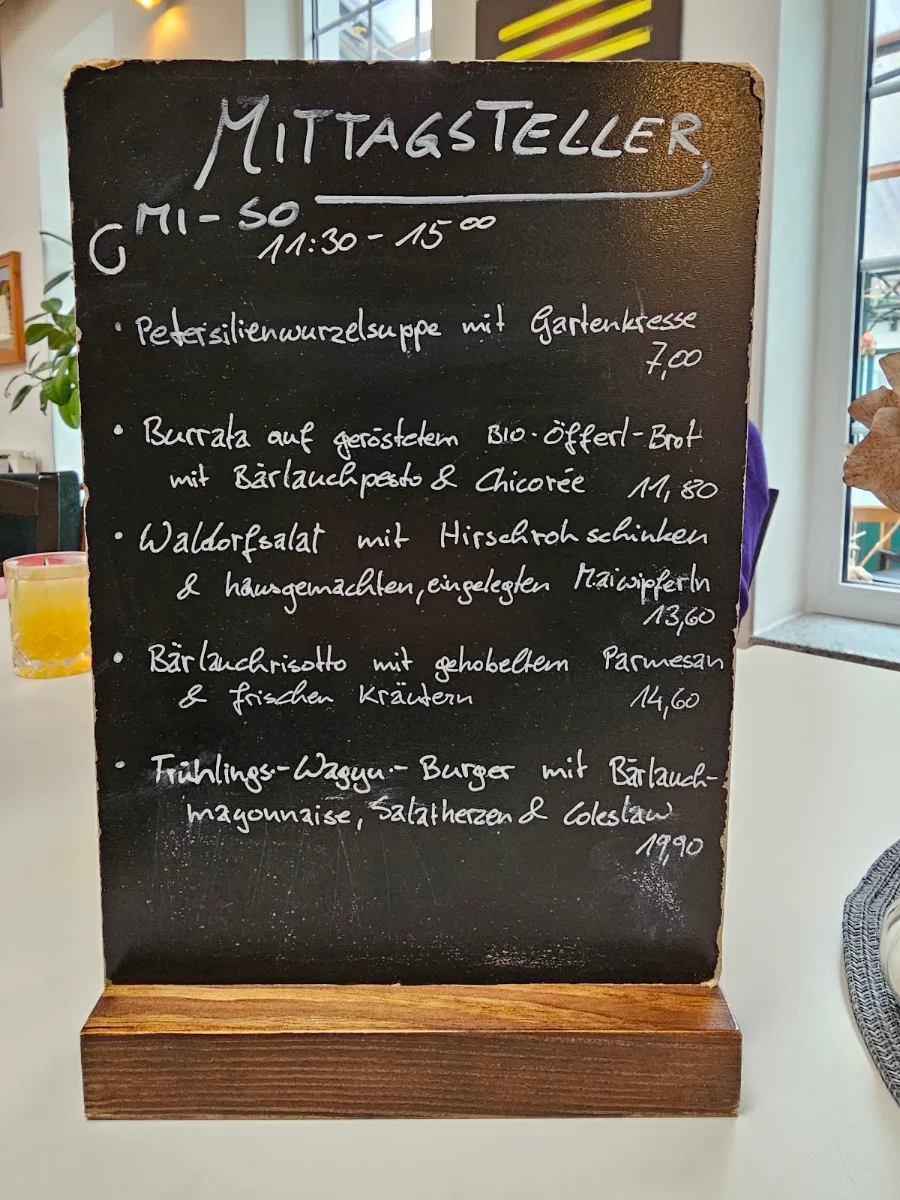 MITTAGSTELLER
MI - SO
11:30 - 15 00
• Petersilienwurzelsuppe mit Gartenkresse
7,00
• Burrata auf geröstetem BIO-Öfferl-Brot
mit Bärlauchpesto & Chicorée 11,80
• Waldorfsalat mit Hirschrohschinken
& hausgemachten, eingelegten Maiwipferln
13,60
• Bärlauchrisotto mit gehobeltem Parmesan
& frischen Kräutern 14,60
• Frühlings-Wagyu-Burger mit Bärlauch-
mayonnaise, Salatherzen & Coleslaw
19,90